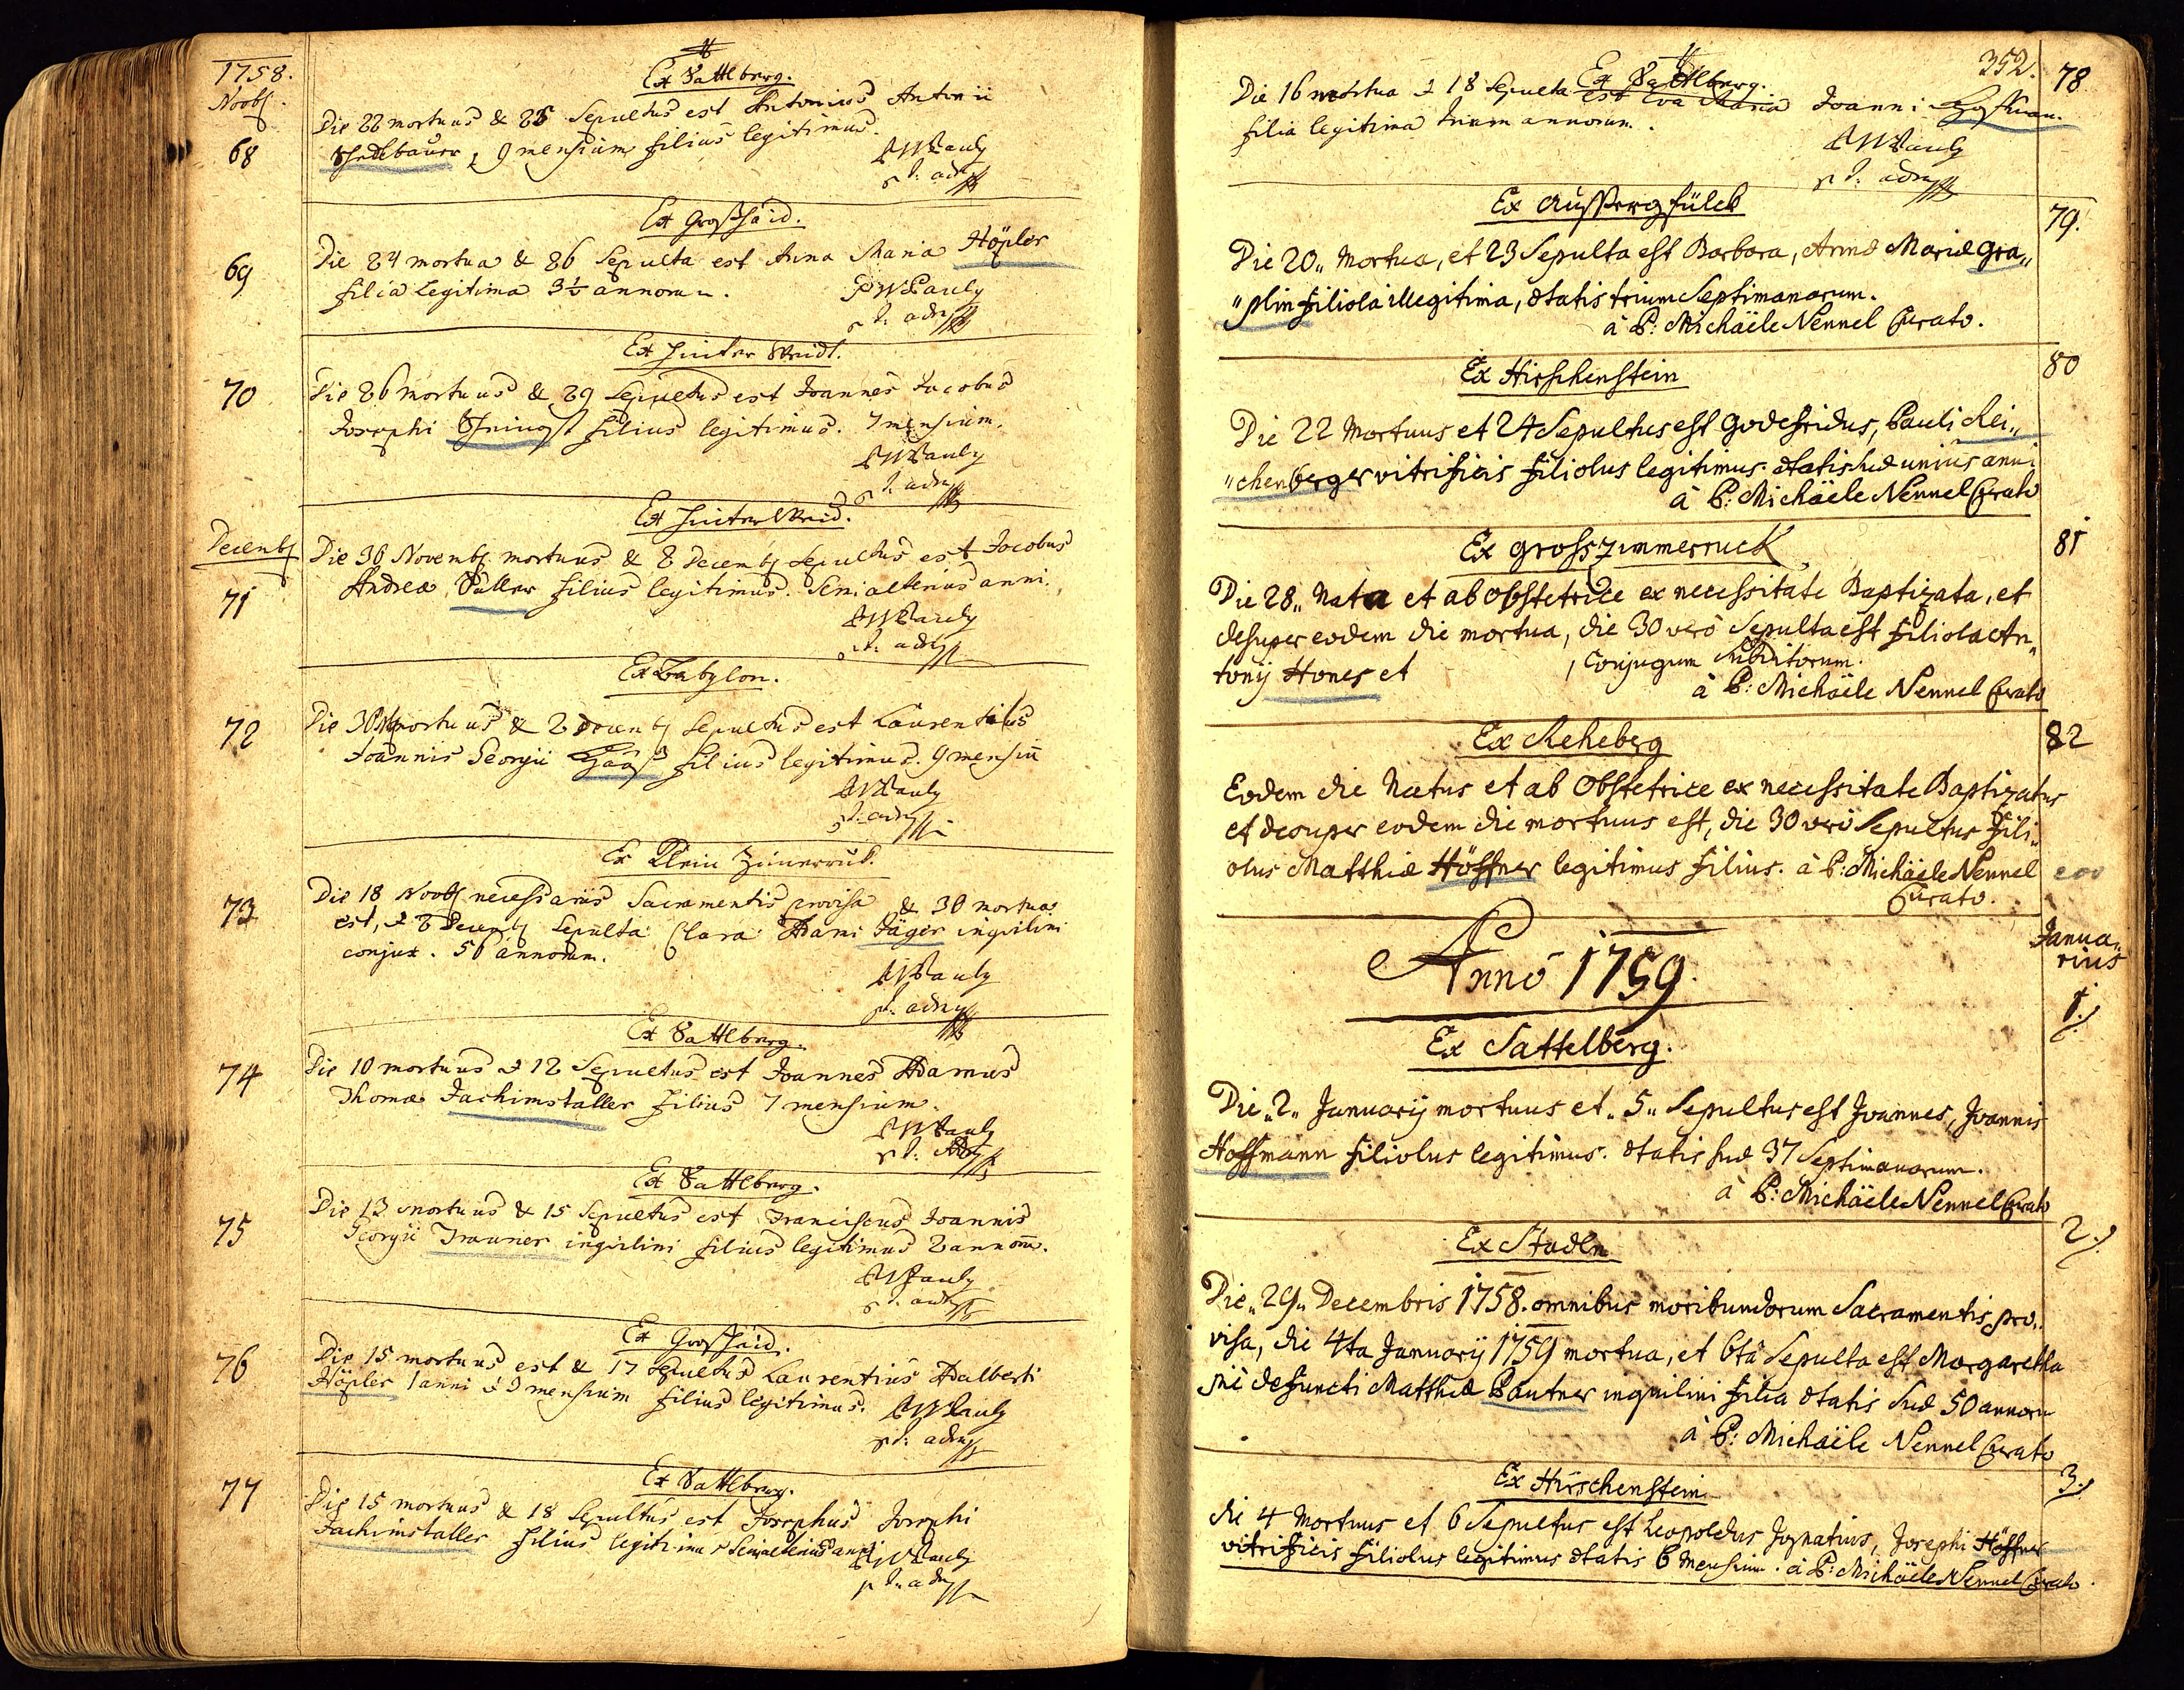 1758.
Novb.
Ex Sattlberg.
68
Die 22 mortuus & 25 Sepultus est Antonius Antonii
Schedlbauer, 9 mensium filius legitimus.
PWPauly
p. t. adm
Ex Großhaid.
69
Die 24 mortua & 26 Sepulta est Anna Maria Höpler
filia Legitima 3½ annorum.
PWPauly
p. t. adm
Ex hinter Waid.
70
Die 26 mortuus & 29 Sepultus est Joannes Jacobus
Josephi filius legitimus. 7 mensium.
PWPauly
p. t. adm
Decemb
Ex hinter Waid.
71
Die 30 Novemb. mortuus & 2 Decemb Sepultus est Jacobus
Andreæ filius legitimus. Semialterius anni.
PWPauly
p. t. adm
Ex Babylon.
72
Die 30 mortuus & 2 Decemb Sepultus est Laurentius
Joannis Georgii Haas filius legitimus. 9 mensiu
PWPauly
p. t. adm
Ex Klein Zimerruck.
73
Die 18 Novb necessariis Sacramentis provisa & 30 mortua
est, & 2 Decemb Sepulta Clara Adami Jäger inquilini
conjux. 50 annorum.
PWPauly
p. t. adm
Ex Sattlberg.
74
Die 10 mortuus & 12 Sepultus est Joannes Adamus
Thomæ Jachimstaller filius 7 mensium.
PWPauly
p. t. Adm
Ex Sattlberg.
75
Die 13 mortuus & 15 Sepultus est Franciscus Joannis
Georgii Trauner inquilini filius legitimus 2 annorum.
PWPauly
p. t. adm
Ex Großhaid.
76
Die 15 mortuus est & 17 Sepultus Laurentius Adalberti
Höpler 1 anni & 9 mensium filius legitimus.
PWPauly
p. t. adm
Ex Sattlberg.
77
Die 15 mortuus & 18 Sepultus est Josephus Josephi
Jachimstaller filius legitimus Semialterius anni
PWPauly
p. t. adm
352.
Ex Sattlberg.
78
Die 16 mortua & 18 Sepulta est Eva Maria Joanni
filia legitima trium annorum.
PWPauly
p. t. adm
Ex Aussergfüld
79.
Die 20,, Mortua, et 23 Sepulta est Barbora, Annæ Mariæ Gra,,
,,plin filiola illegitima, ætatis trium Septimanarum.
à P: Michäele Nennel Curato.
Ex Hirschenstein
80
Die 22 Mortuus et 24 Sepultus est Godefridus, Pauli Rei,,
,,chenberger vitrificis filiolus legitimus. ætatis suæ unius anni
à P: Michäele Nennel Curato
Ex grosszimmerruck
81
Die 28,, Nata et ab obstetrice ex necessitate Baptizata, et
desuper eodem die mortua, die 30 verò Sepulta est filiola An,,
tonij Hones et , Conjugum Subditorum.
à P: Michäele Nennel Curato
Ex Reheberg
82
Eodem die Natus et ab Obstetrice ex necessitate Baptizatus
et desuper eodem die mortuus est, die 30 verò Sepultus fili,,
olus Matthiæ Höffner legitimus filius. à P: Michäele Nennel
Curato.
Anno 1759.
Janua,,
rius
1./.
Ex Sattelberg.
Die,,2,, Januarij mortuus et,,5,, Sepultus est Joannes, Joannis
Hoffmann filiolus legitimus. ætatis suæ 37 Septimanarum.
à P: Michäele Nennel Curato
2./.
Ex Stadln
Die,,29,, Decembris 1758. omnibus moribundorum Sacramentis pro,,
visa, die 4ta Januarij 1759 mortua, et 6tâ Sepulta est Margaretha
piè defuncti Matthiæ Pautner inquilini filia ætatis Suæ 50 annoru
à P: Michäele Nennel Curato
3./.
Ex Hirschenstein
die 4 Mortuus et 6 Sepultus est Leopoldus Ignatius, Josephi Höffner
vitrificis filiolus legitimus ætatis 6 Mensium. à P: Michäele Nennel Curato.